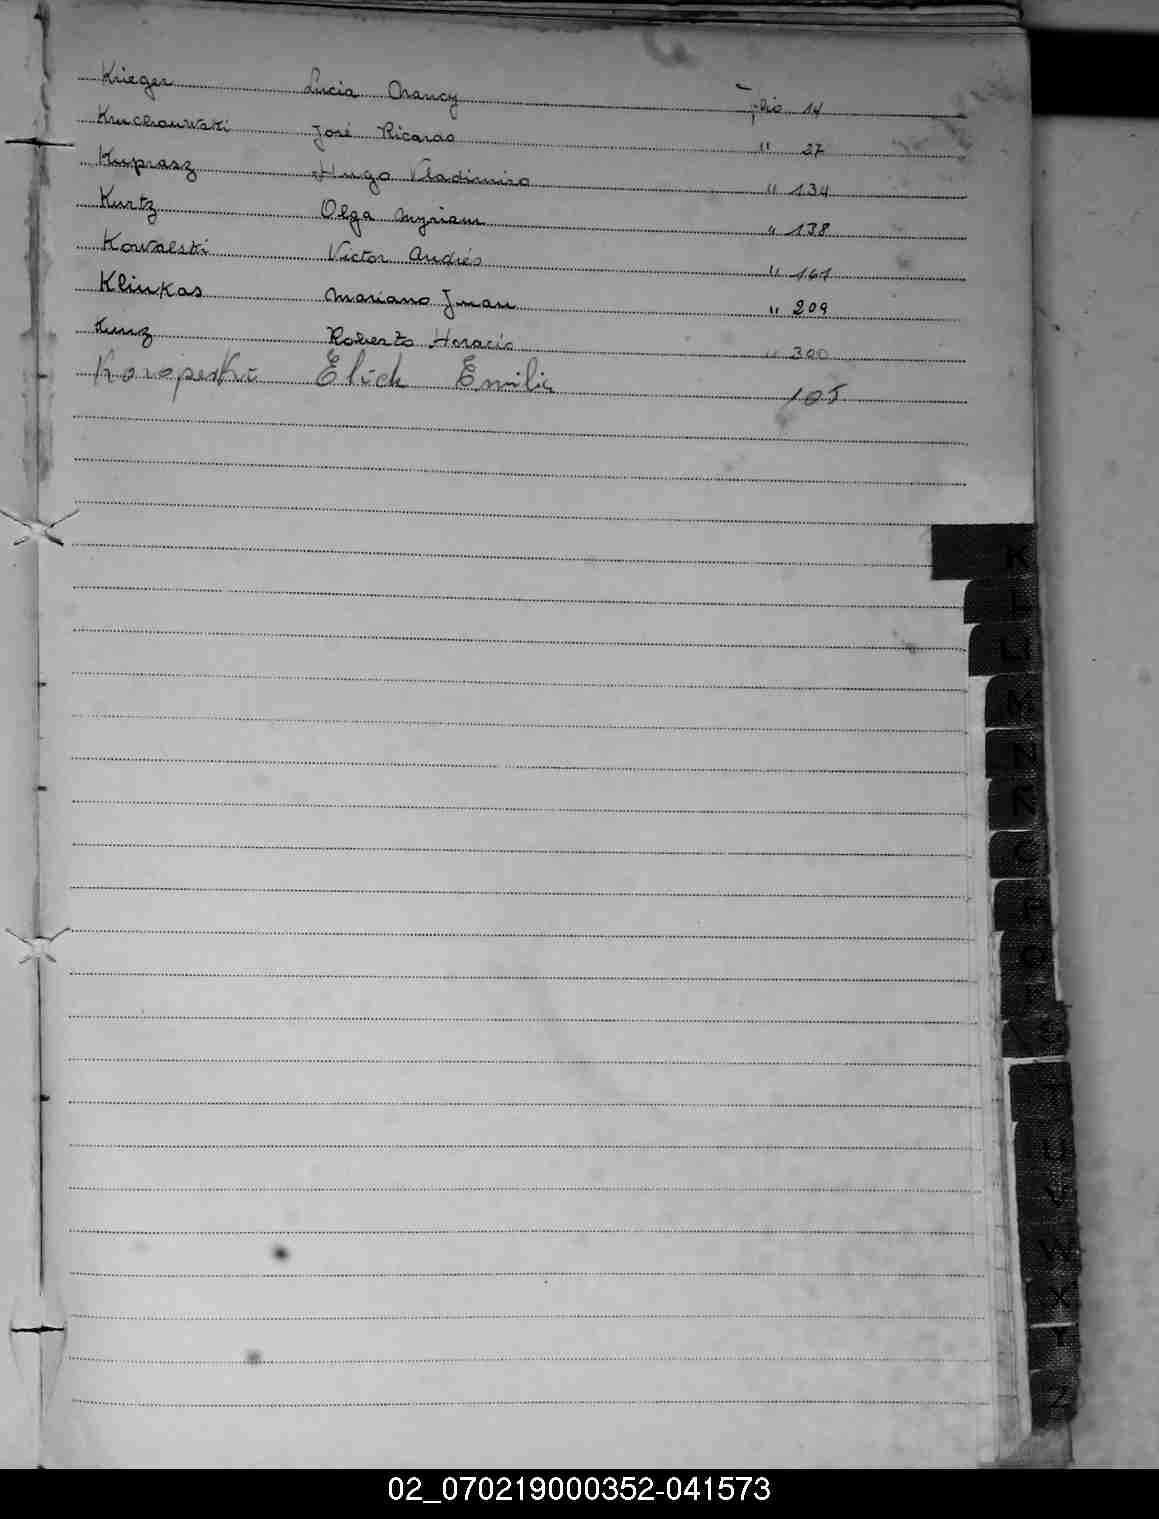 Krieger Lucia Nancy Folio 14
Kruchowski José Ricardo " 27
Kuprasz Hugo Vladimiro " 134
Kurtz Olga Myriam " 138
Kowalski Victor Andrés " 161
Klinkas Mariano Juan " 209
Kunz Roberto Horacio " 300
Elich Emilio 105
K
L
LL
M
N
Ñ
O
P
Q
R
S
T
U
V
W
X
Y
Z
02_070219000352-041573